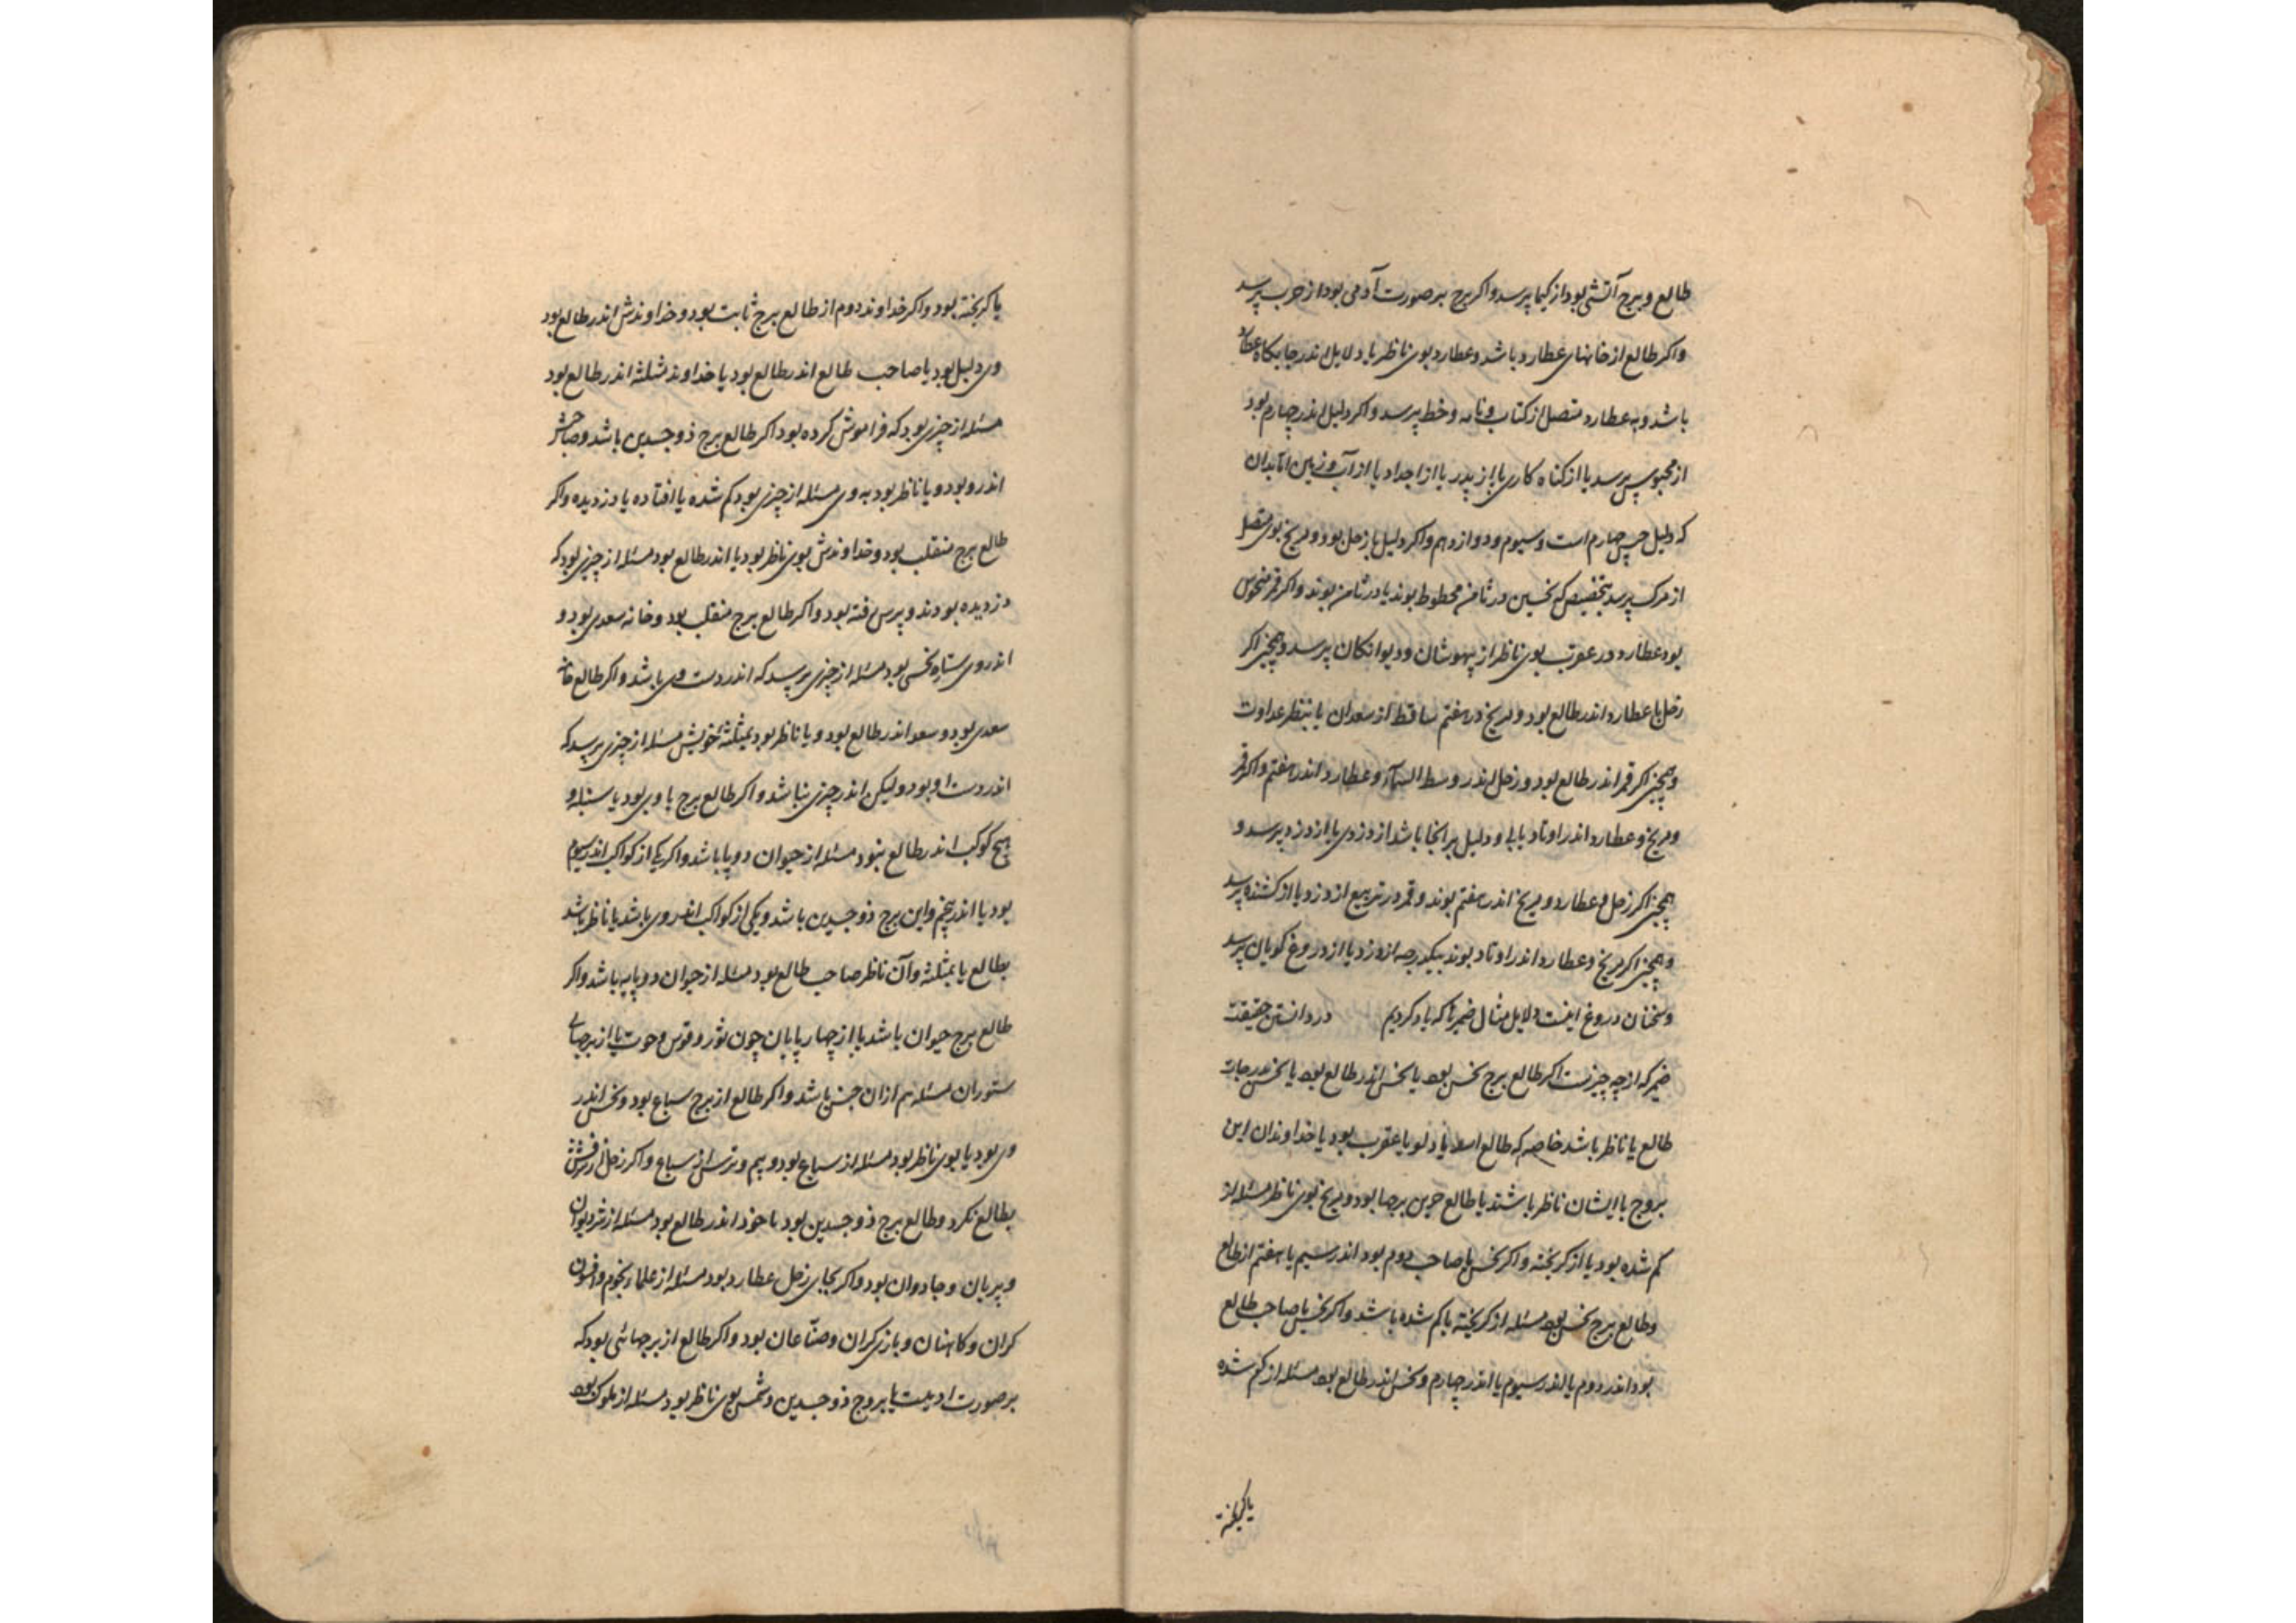 طالع و برج آتشی بود از کیمیا پرسد و اکر برج بر صورت آدمی بود از حرب پرسد
و اکر طالع از خانهای عطارد باشد و عطارد بوی ناظر یا دلایل اندر جایکاه عطارد
باشد و به عطارد متصل از کتاب و نامه و خط پرسد و اکر دلیل اندر چهارم بود
از محبوس پرسد یا از کناه کاری یا از پدر یا از اجداد یا از آب و زمین
که دلیل حبس چهارم است و سیوم و دوازدهم و اکر دلیل با زحل بود و مریخ بوی متصل
از مرک پرسد بتخصیص که نحسین در ثامن محطوط بوند یا در ثامن بوند و اکر قمر منحوس
بود عطارد در عقرب بوی ناظر از بیهوشان و دیوانکان پرسد و همچنین اکر
زحل با عطارد اندر طالع بود و مریخ در هفتم ساقط از سعدان یا بنظر عداوت
و همچنین اکر قمر اندر طالع بود و زحل اندر وسط السمآء و عطارد اندر هفتم و اکر قمر
و مریخ و عطارد اندر اوتاد یا بی و دلیل بر انجا باشد از دزدی یا از دزد پرسد و
همچنین اکر زحل و عطارد و مریخ اندر هفتم بوند و قمر در تربیع از دزد یا از کشنده پرسد
و همچنین اکر مریخ و عطارد اندر اوتاد بوند بیکدرجه از دزد یا از دروغ کویان پرسد
و سخنان دروغ اینست دلایل مثال ضمیرها که یاد کردیم در دانستن حقیقت
ضمیر که از چه چیزست اکر طالع برج نحس بود یا نحس اندر طالع بود یا نحس بدرجات
طالع یا ناظر باشد خاصه که طالع اسد یا دلو یا عقرب بود یا خداوندان این
بروج با ایشان ناظر باشند یا طالع برجها بود و مریخ بوی ناظر مسئله از
کم شده بود یا از کریخته و اکر نحس با صاحب دوم بود اندر سیم یا هفتم از طالع
و طالع برج نحس بود مسئله از کریخته یا کم شده باشد و اکر نحس با صاحب طالع
بود اندر دوم یا اندر سیوم یا اندر چهارم و نحس اندر طالع بود مسئله از کم شده
یا کریخته
یا کریخته بود و اکر خداوند دوم از طالع برج ثابت بود و خداوندش اندر طالع بود
وی دلیل بود یا صاحب طالع اندر طالع بود یا خداوند مثلثه اندر طالع بود
مسئله از چیزی بود که فراموش کرده بود اکر طالع برج ذو جسدین باشد و صاحبش
اندرو بود و یا ناظر بود به وی مسئله از چیزی بود کم شده یا افتاده یا دزدیده و اکر
طالع برج منقلب بود و خداوندش بوی ناظر بود یا اندر طالع بود مسئله از چیزی بود که
دزدیده بودند و پرس رفته بود و اکر طالع برج منقلب بود و خانه سعدی بود و
اندر وی ستاره نحس بود مسئله از چیزی پرسد که اندر دست وی باشد و اکر طالع خانه
سعدی بود و سعد اندر طالع بود و یا ناظر بود بمثلثه خویش مسئله از چیزی پرسد که
اندر دست او بود و لیکن اندر چیزی نباشد و اکر طالع برج بود یا سنبله و
هیچ کوکب اندر طالع نبود مسئله از حیوان دو پا باشد و اکر یکی از کواکب اندر سیوم
بود یا اندر پنجم و این برج ذو جسدین باشد و یکی از کواکب اندر وی باشد یا ناظر باشد
بطالع یا بمثلثه و آن ناظر صاحب طالع بود مسئله از حیوان دو پایه باشد و اکر
طالع برج حیوان باشد یا از چهار پایان چون ثور و قوس و حوت یا از برجهای
ستوران مسئله هم ازان جنس باشد و اکر طالع از برج سباع بود و نحس اندر
وی بود یا بوی ناظر بود مسئله از سباع بود و بیم و ترس از سباع و اکر زحل از شرفش
بطالع نکرد و طالع برج ذو جسدین بود یا خود اندر طالع بود مسئله از دیوان
و پریان و جادوان بود و اکر بجای زحل عطارد بود مسئله از علماء نجوم و افسون
کران و کاهنان و بازی کران و صنّاعان بود و اکر طالع از برجهائی بود که
بر صورت ادمیست یا بروج ذو جسدین و شمس بوی ناظر بود مسئله از ملوک بود